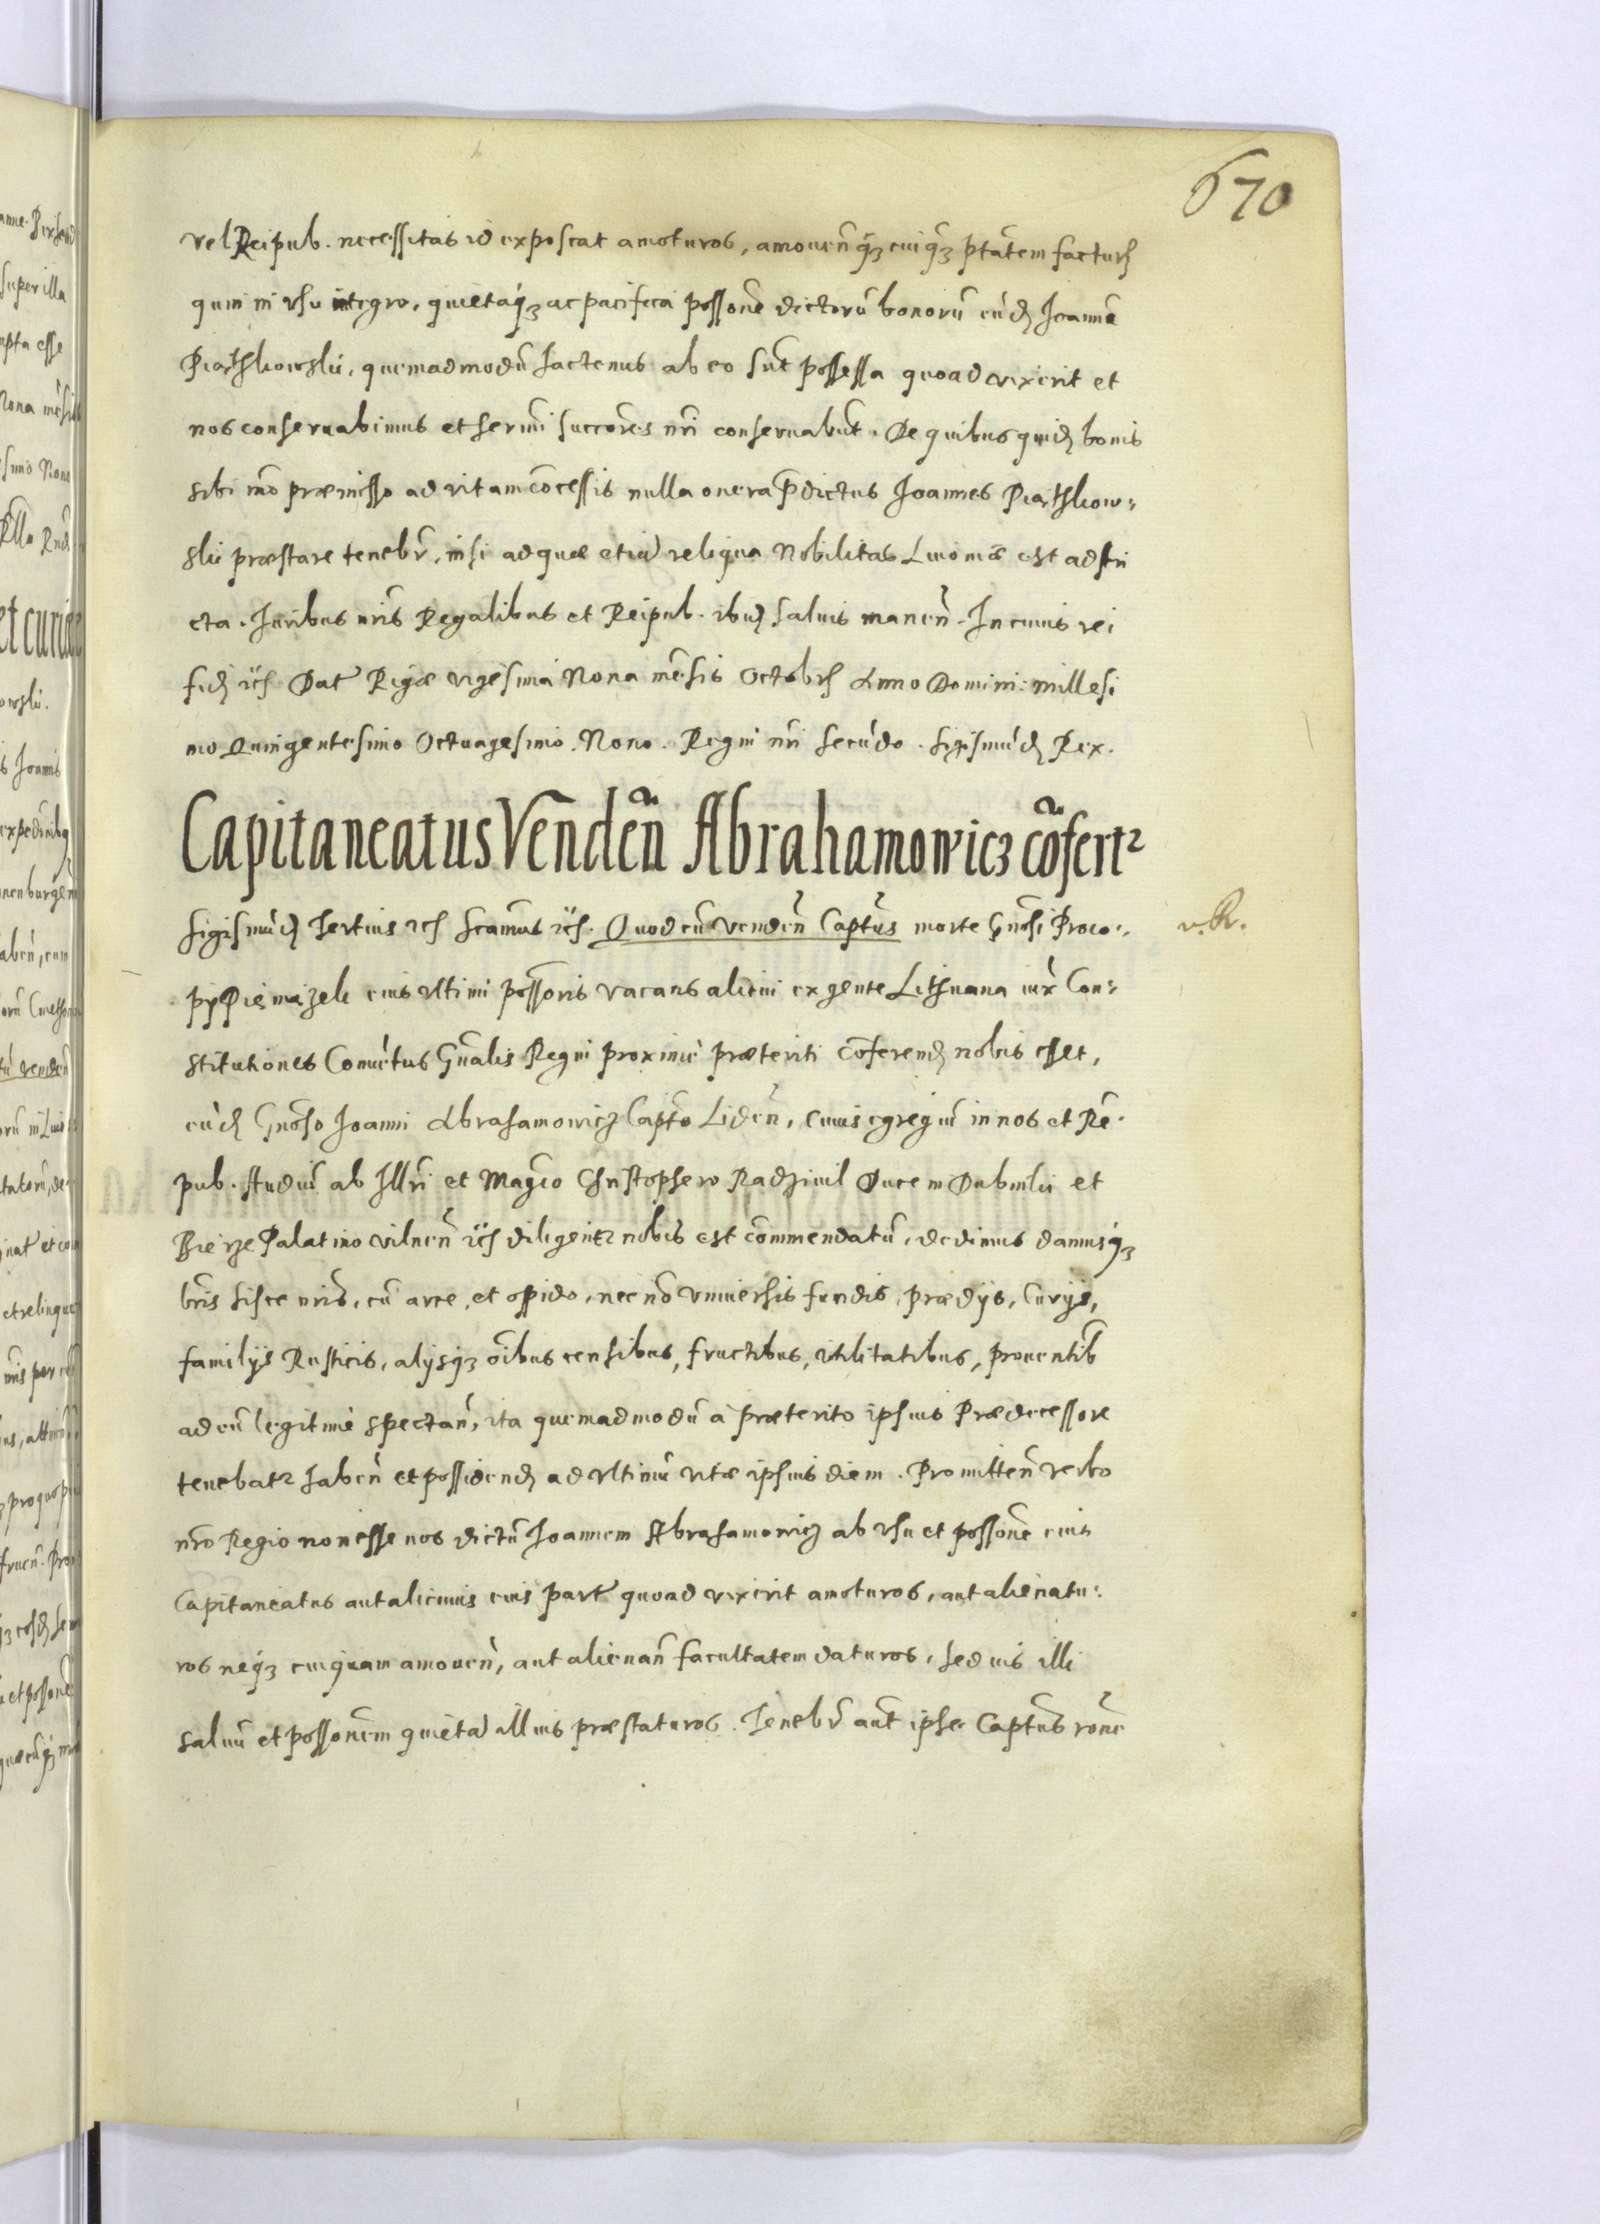 670
vel Reipub. necessitas id exposcat amoturos, amouen̄ q̢ȝ cuiq̢ȝ ptātem factur̨
quin in vsu integro, quietaq̢ȝ ac pacifica possone dictorū bonorū eūd̨ Joannē
Piasthkowskii, quemadmodū hactenus ab eo sūt possessa quoad vixerit et
nos conseruabimus et sermi succores nri conseruabūt. De quibus quid̨ bonis
sibi mō præmisso ad vitam cōcessis nulla onera p̄dictus Joannes Piasthkow-
ski præstare tenebr̄, nisi ad quæ etiā reliqua Nobilitas Liuoniæ est adstri
cta. Juribus nr̄is Regalibus et Reipub. ibid̨ saluis manen̄. In cuius rei
fid̨ Dat̄ Rigæ vigesima Nona mēsis Octobr̨ Anno Domini millesi
mo Quingentesimo Octuagesimo Nono. Regni nr̄i secūdo. Sigismūd̨ Rex.
Capitaneatus Venden̄ Abrahamowicz cōfert̃
Sigismūd̨ Tertius Quod cū venden̄ Captūs morte Gnōsi Proco-
v. R.
py eius vltimi possōris vacans alicui ex gente Lithuana iux̄ Con-
stitutiones Conuētus Gn̄alis Regni proximè præteriti cōferend̨ nobis esset,
eūd̨ Gnōso Joanni Abrahamowicz Captō Liden̄, cuius egregiū in nos et Rē-
pub. studiū ab Illri et Magco Christophero Radziuil Duce in Dubinki et
Bierze Palatino vilnen̄ diligent̃ nobis est commendatū, dedimus damusq̢ȝ
lr̄is hisce nr̄is, cū arce, et oppido, nec nō vniuersis fundis, prædijs, Curijs,
familijs Rusticis, alijsq̢ȝ ōibus censibus, fructibus, vtilitatibus, prouentib̄
ad eū legitimè spectan̄, ita quemadmodū à præterito ipsius Prædecessore
tenebat̃ haben̄ et possidend̨ ad vltimū vitæ ipsius diem. Promitten̄ verbo
nr̄o Regio non esse nos dictū Joannem Abrahamowicz ab vsu et possōne eius
Capitaneatus aut alicuius eius part̄ quoad vixerit amoturos, aut alienatu-
ros neq̢ȝ cuiquam amouen̄, aut alienan̄ facultatem daturos, sed ius illi
saluū et possōnem quietā illius præstaturos. Tenebr̄ aūt ipse Captūs rōne